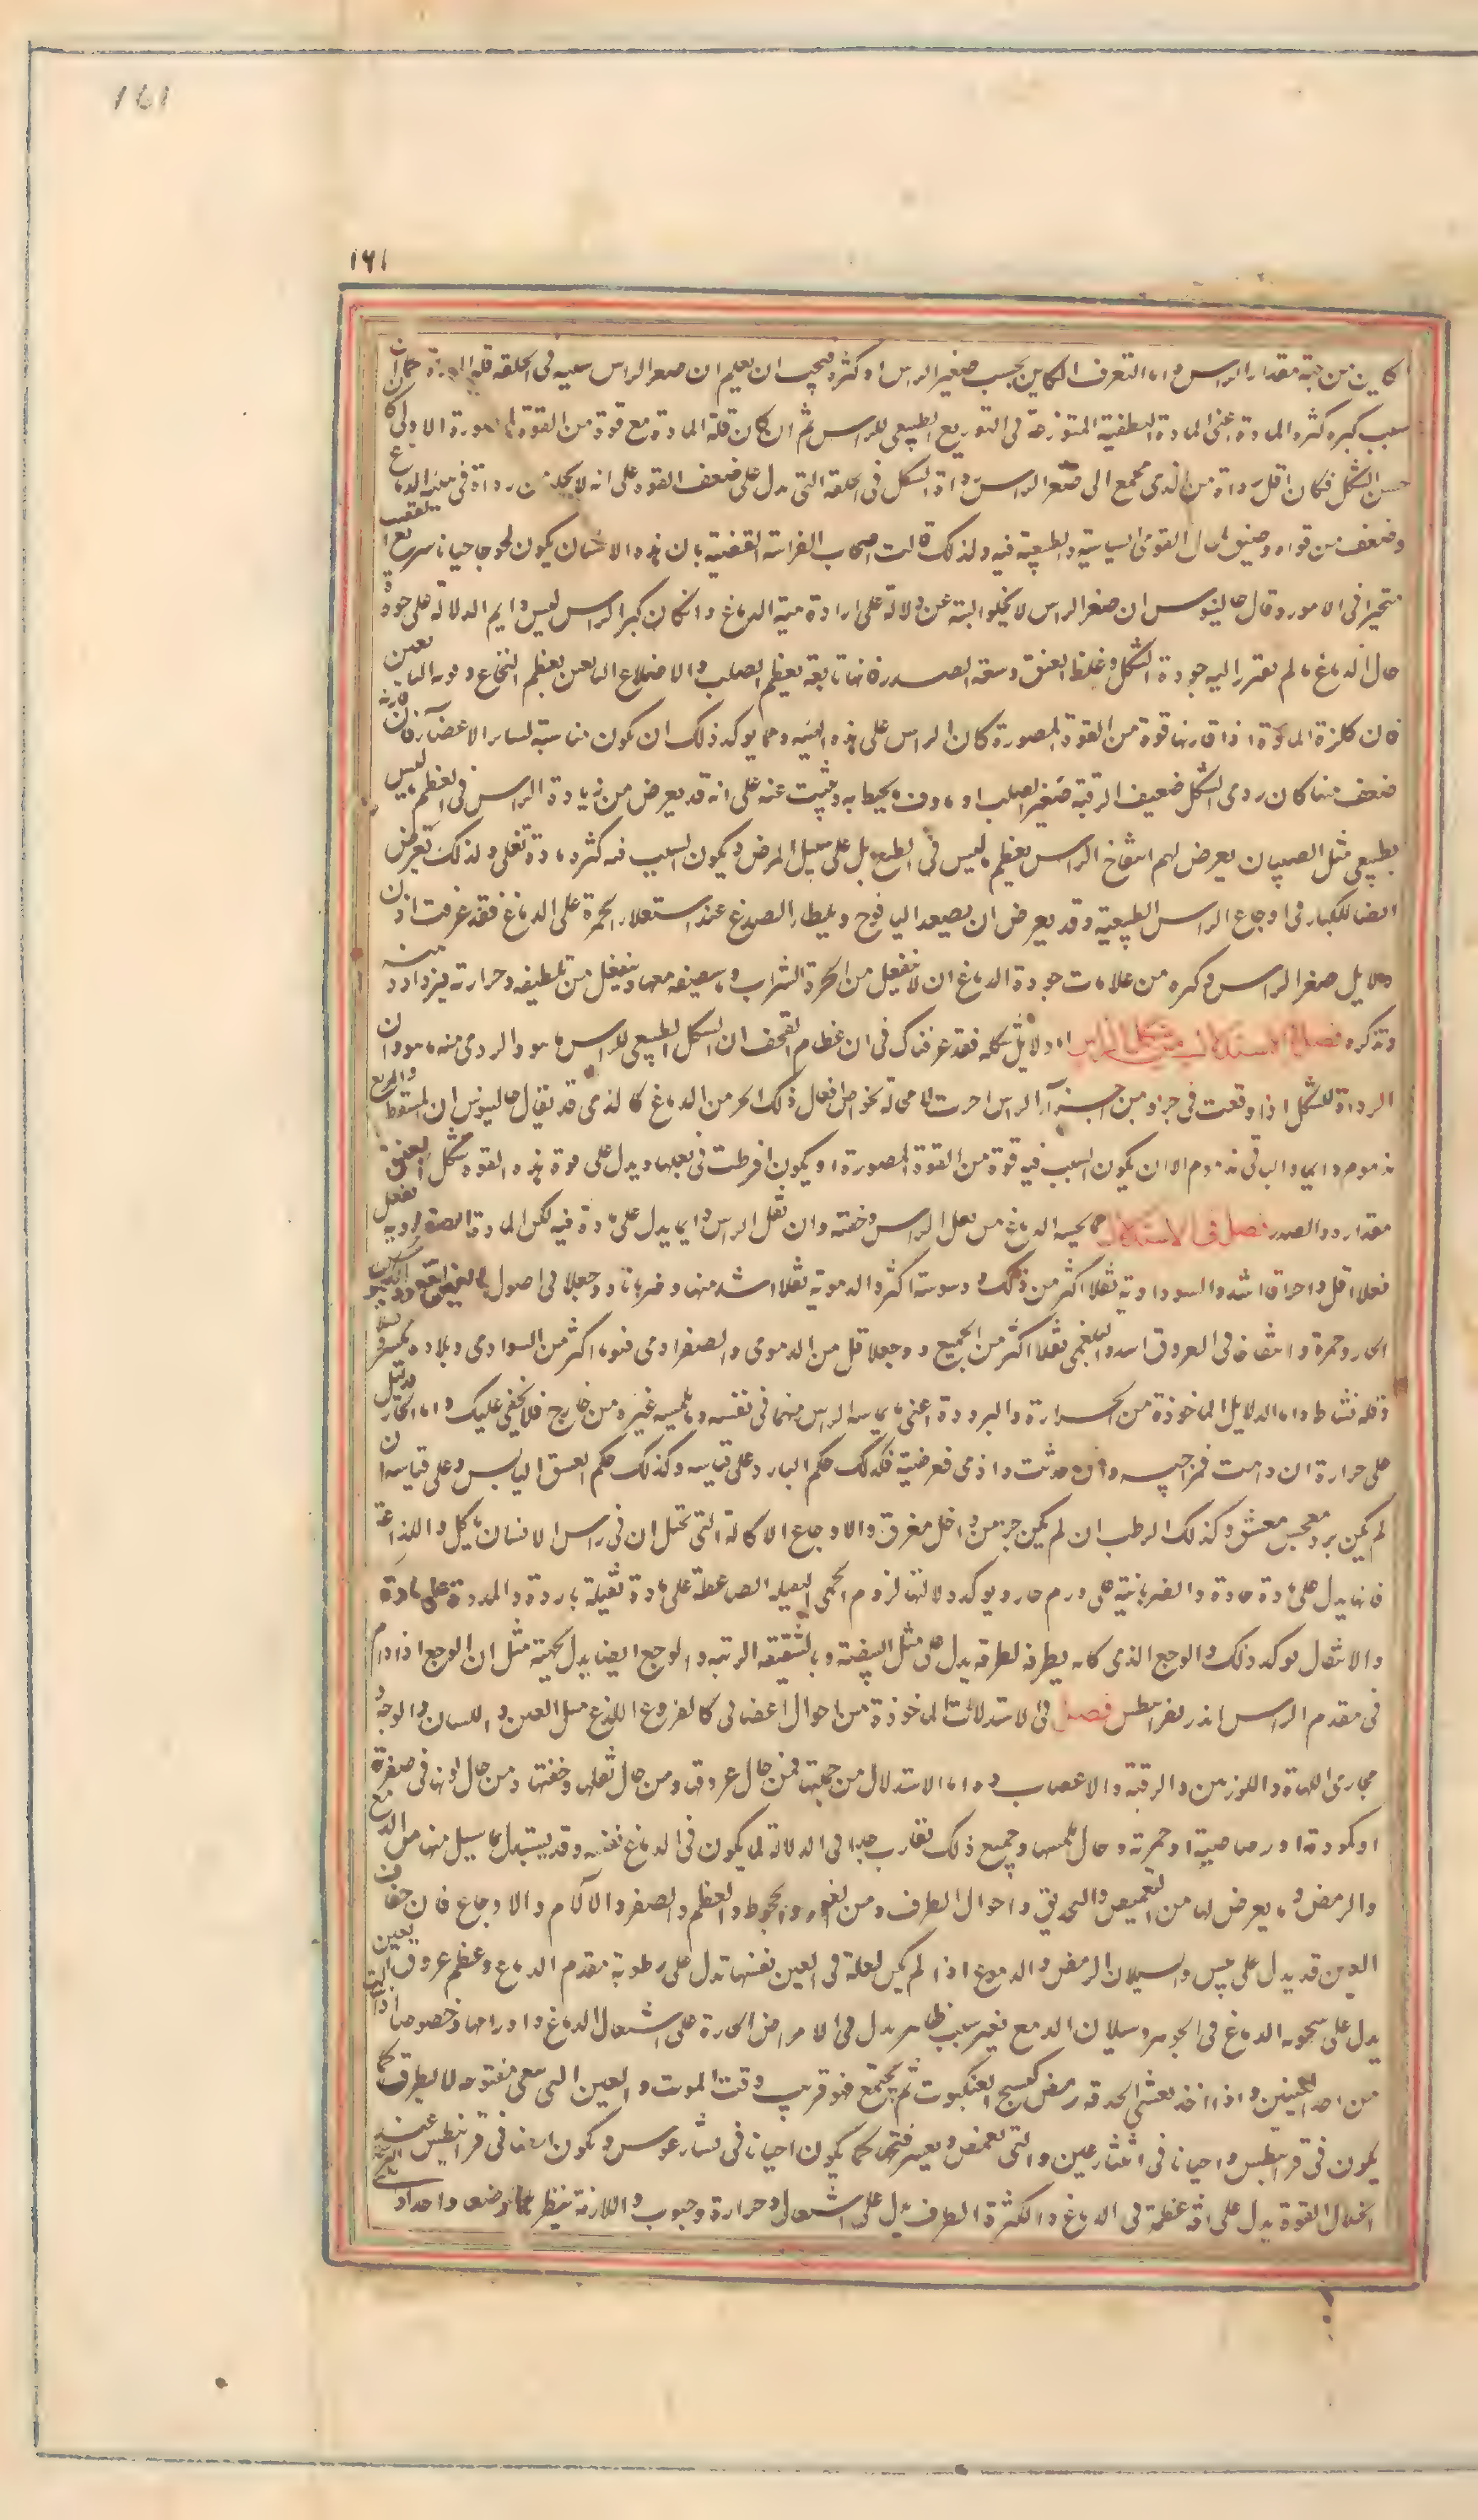 161
١٦١
كاين من جهة مقدار الراس واما التعرف الكاين بحسب صغير الراس او كثره فيجب ان يعلم ان صغر الراس سببه فى الخلقة قلة المادة كما ان
سبب كبره كثرة المادة اعنى المادة النطفية المتوزعة فى التوزيع الطبيعى للراس ثم ان كان قلة المادة مع قوة من القوة المصورة الاولى كا
حسن الشكل فكان اقل رداة من الذى يجمع الى صغر الراس رداة الشكل فى الخلقة التى تدل على ضعف القوة على انه لا يخلو من رداة فى هيئة الدماغ
وضعف من قواه وضيق لمجال القوى السياسية والطبيعية فيه ولذلك قالت اصحاب الفراسة القضية بان هذا الانسان يكون لجوجا جبانا سريع الغضب
متحيرا فى الامور وقال جالينوس ان صغر الراس لا يخلو البتة عن دلالة على رداة هيئة الدماغ وان كان كبر الراس ليس دايم الدلالة على جودة
حال الدماغ ما لم يقترن اليه جودة الشكل وغلظ العنق وسعة الصدر فانها تابعة لعظم الصلب والاضلاع التابعين لعظم النخاع وقوته التابعين
فان كثرة المادة اذا قارنها قوة من القوة المصورة كان الراس على هذه الهيئة ومما يوكد ذلك ان يكون مناسبة لساير الاعضآ فان قارنه
ضعف منها كان ردى الشكل ضعيف الرقبة صغير الصلب او ماوف ما يحيط به وينبت عنه على انه قد يعرض من زيادة الراس فى العظم ما ليس
بطبيعى مثل الصبيان يعرض لهم انتفاخ الراس وتعظيمه ما ليس فى الطبع بل على سبيل المرض ويكون السبب فيه كثرة مادة تغلى ولذلك تعرض
ايضا للكبار فى اوجاع الراس الطبيعية وقد يعرض ان يصعد اليافوخ ويلطا الصدغ عند استعلاء الحمرة على الدماغ فقد عرفت اذن
دلايل صغر الراس وكبره من علامات جودة الدماغ ان لا ينفعل من ابخرة الشراب وما يصيفه معها وينفعل من تلطيفه وحرارته فيزداد ذهنه
وتذكره فصل فى الاستدلال من شكل الراس اما دلايل شكله فقد عرفناك فى ان عظام القحف ان الشكل الطبيعى للراس ما هو والردى منه ما هو وان
الرداة للشكل اذا وقعت فى جزو من اجزآ الراس اضرت لا محالة بخواص افعال ذلك الجزء من الدماغ كالذى قد يقال جالينوس ان المسفط والمربع
مذموم دايما والباقى مذموم الا ان يكون السبب فيه قوة من القوة المصورة او يكون افرطت فى فعلها ويدل على قوة هذه القوة شكل العنق
مقداره والصدر فصل فى الاستدلال مما يحسه الدماغ من ثقل الراس وخفته وان ثقل الراس دايما يدل على مادة فيه لكن المادة الصفراوية تفعل
فعلا اقل واحراقا اشد والسوداوية ثقلا اكثر من ذلك ووسوسة اكثر والدموية ثقلا اشد منها وضربانا ووجعا فى اصول العين
الحار وحمرة وانتفاخا فى العروق اشد والبلغمى ثقلا اكثر من الجميع ووجعا اقل من الدموى والصفراوى فنوما اكثر من السوداوى وبلادة
وقلة نشاط واما الدلايل الماخوذة من الحرارة والبرودة اعنى ما يلمسه الراس منهما فى نفسه وما يلمسه غيره من خارج فلا يخفى عليك واما الحار
على حرارة ان دامت فمزاجيه وان حدثت واذى فعرضية فكذلك حكم البارد على قياسه وكذلك حكم اليابس وعلى قياسه ان
لم يكن برد وكذلك الرطب ان لم يكن حر من داخل مغرق والاوجاع الاكالة التى تخيل ان فى راس الانسان ما يأكل واللذاعة
فانها يدل على مادة حادة والضربانية على ورم حار ويوكد دلالتها لزوم الحمى الثقيلة الضاغطة على مادة ثقيلة باردة والممددة على مادة
والانتقال يوكد ذلك والوجع الذى كانه يطرق بمطرقة يدل على مثل البيضة والشقيقة المزمنة والوجع ايضا يدل بجهته مثل ان الوجع اذا دام
فى مقدم الراس انذر بقرانيطس فصل فى الاستدلالات الماخوذة من احوال اعضا هى كالفروع للدماغ مثل العين واللسان والوجه و
مجارى اللهاة واللوزتين والرقبة والاعصاب واما الاستدلال من جهتها فمن حال عروقها ومن حال ثقلها وخفتها ومن حال لونها فى صفرة
او كمودة او رصاصية او حمرة وحال ملمسها وجميع ذلك تقارب جدا فى الدلالة لما يكون فى الدماغ نفسه وقد يستدل بما يسيل منها من الدمع
والرمض وما يعرض لها من التغميض والتحديق واحوال الطرف ومن الغور والجحوظ والعظم والصغر والآلام والاوجاع فان جفاف
العين قد يدل على يبس والسيلان الرمض والدموع اذا لم يكن لعلة فى العين نفسها تدل على رطوبة مقدم الدماغ وعظم عروق العين
يدل على سخونة الدماغ فى الجوهر وسيلان الدمع بغير سبب ظاهر يدل فى الامراض الحارة على اشتعال الدماغ واورامها وخصوصا اذا
من احد العينين واذا اخذ يغشى الحدقة رمض كنسج العنكبوت ثم يجتمع فهو قريب وقت الموت والعين التى تبقى مفتوحة لا يطرف كما
يكون فى قرانيطس واحيانا فى ليثارغس والتى تغمض ويعسر فتحها كما يكون احيانا فى ليثارغوس ويكون ايضا فى قرانيطس عند
انحلال القوة يدل على آفة عظيمة فى الدماغ والكثيرة الطرف تدل على اشتعال وحرارة وجنون واللازمة بنظرها موضعا واحدا